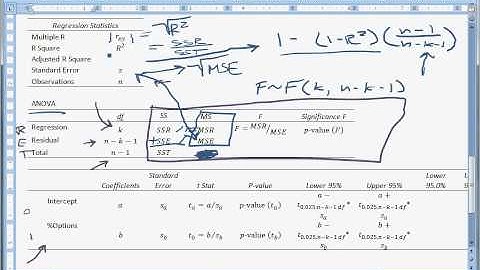 Regression Statistics
Multiple R |r_xy| = √R²
R Square R² = SSR/SST
Adjusted R Square 1 - (1-R²)(n-1/n-k-1)
Standard Error s √MSE
Observations n
F~F(k, n-k-1)
ANOVA
df SS MS F Significance F
R Regression k SSR MSR F = MSR/MSE p-value (F)
E Residual n − k − 1 SSE MSE
T Total n − 1 SST
Coefficients Standard Error t Stat P-value Lower 95% Upper 95% Lower 95.0%
0 Intercept a s_a t_a = a/s_a p-value (t_a) a − t_0.025,n−k−1 df * s_a a + t_0.025,n−k−1 df * s_a
1 %Options b s_b t_b = b/s_b p-value (t_b) b − t_0.025,n−k−1 df * s_b b + t_0.025,n−k−1 df * s_b